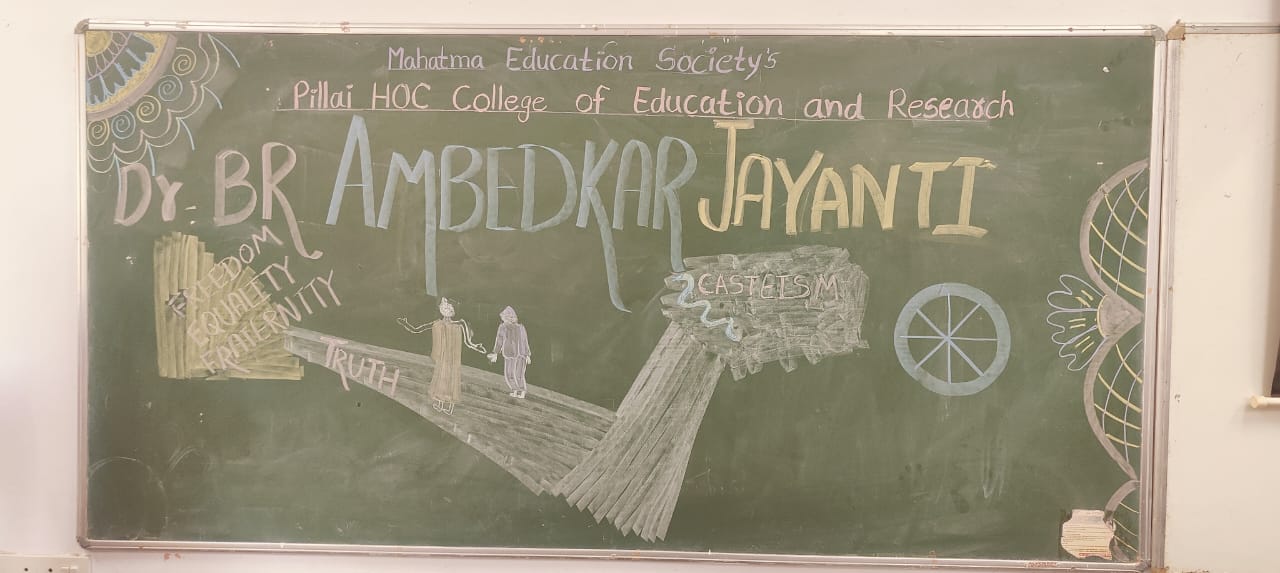 Mahatma Education Society's
Pillai HOC College of Education and Research
Dr. BR AMBEDKAR JAYANTI
FREEDOM
EQUALITY
FRATERNITY
TRUTH
CASTEISM